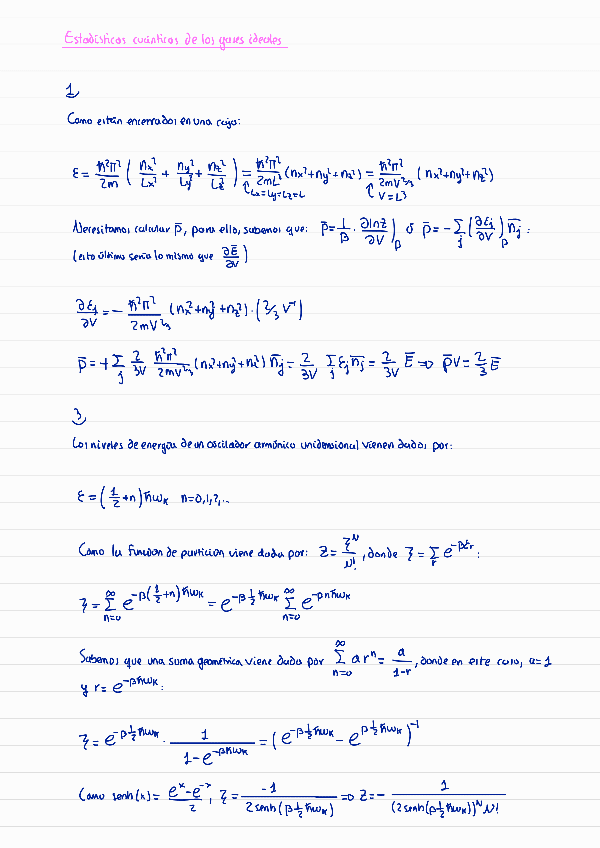 Estadísticas cuánticas de los gases ideales
1
Como están encerrados en una caja:
ε = ħ²π²/2m ( nx²/Lx² + ny²/Ly² + nz²/Lz² ) = ħ²π²/2mL² (nx²+ny²+nz²) = ħ²π²/2mV^(2/3) (nx²+ny²+nz²)
Lx=Ly=Lz=L V=L³
Necesitamos calcular p̄, para ello, sabemos que: p̄ = 1/β · ∂lnZ/∂V )β ó p̄ = -Σj (∂εj/∂V)β n̄j :
(esto último sería lo mismo que ∂Ē/∂V )
∂εj/∂V = - ħ²π²/2mV^(2/3) (nx²+ny²+nz²) · (2/3 V⁻¹)
p̄ = + Σj 2/3V ħ²π²/2mV^(2/3) (nx²+ny²+nz²) n̄j = 2/3V Σj εj n̄j = 2/3V Ē => p̄V = 2/3 Ē
3
Los niveles de energía de un oscilador armónico unidensional vienen dados por:
ε = (1/2 + n) ħωk n=0,1,2,...
Como la función de partición viene dada por: Z = ζ^N/N! , donde ζ = Σr e^(-βεr) :
ζ = Σ(n=0→∞) e^(-β(1/2+n)ħωk) = e^(-β 1/2 ħωk) Σ(n=0→∞) e^(-βnħωk)
Sabemos que una suma geométrica viene dada por Σ(n=0→∞) a rⁿ = a/(1-r) , donde en este caso, a=1
y r = e^(-βħωk) :
ζ = e^(-β 1/2 ħωk) · 1/(1-e^(-βħωk)) = ( e^(-β 1/2 ħωk) - e^(β 1/2 ħωk) )⁻¹
Como senh(x) = (eˣ-e⁻ˣ)/2 , ζ = -1/(2 senh(β 1/2 ħωk)) => Z = - 1/((2 senh(β 1/2 ħωk))^N N!)